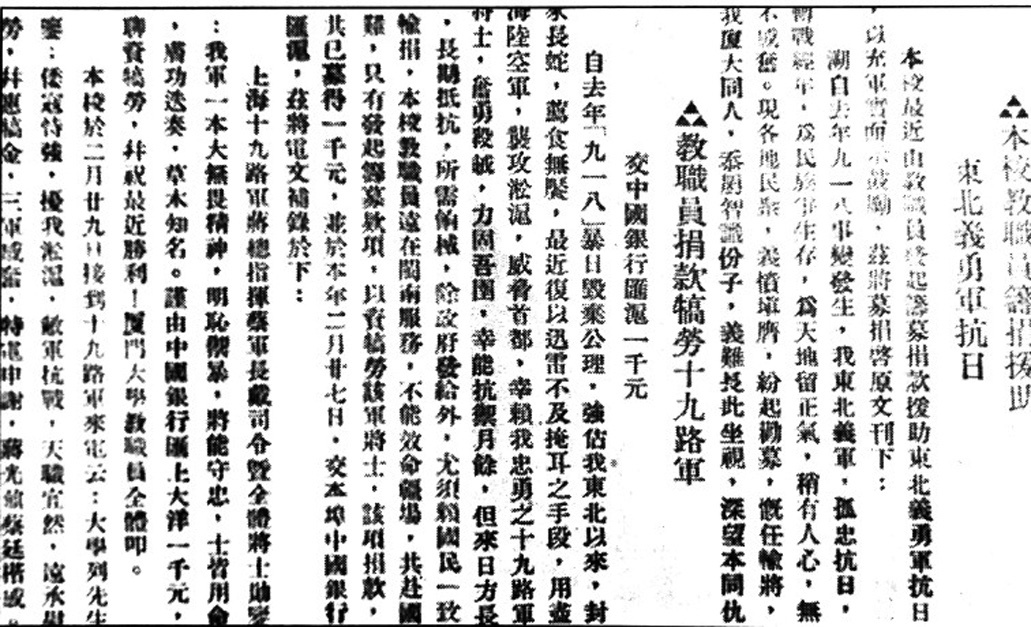 本校教職員籌捐援助
東北義勇軍抗日
本校最近由教職員發起籌募捐款援助東北義勇軍抗日
，以充軍實而示鼓勵，茲將募捐啓原文刊下：
溯自去年九一八事變發生，我東北義軍，孤忠抗日，
奮戰經年，爲民族爭生存，爲天地留正氣，稍有人心，無
不感奮。現各地民衆，義憤塡膺，紛起勸募，慨任輸將，
我廈大同人，忝屬智識份子，義難長此坐視，深望本同仇
教職員捐款犒勞十九路軍
交中國銀行匯滬一千元
自去年「九一八」暴日毀棄公理，強佔我東北以來，封
豕長蛇，薦食無饜，最近復以迅雷不及掩耳之手段，用盡
海陸空軍，襲攻淞滬，威脅首都，幸賴我忠勇之十九路軍
將士，奮勇殺敵，力固吾圉，幸能抗禦月餘，但來日方長
，長期抵抗，所需餉械，除政府發給外，尤須賴國民一致
輸捐，本校教職員遠在閩南服務，不能效命疆場，共赴國
難，只有發起籌募款項，以資犒勞該軍將士，該項捐款，
共已募得一千元，並於本年二月廿七日，交本埠中國銀行
匯滬，茲將電文補錄於下：
上海十九路軍蔣總指揮蔡軍長戴司令暨全體將士勛鑒
：我軍一本大無畏精神，明恥禦暴，將能守忠，士皆用命
，膚功迭奏，草木知名。謹由中國銀行匯上大洋一千元，
聊資犒勞，幷祝最近勝利！廈門大學教職員全體叩。
本校於二月廿九日接到十九路軍來電云：大學列先生
鑒：倭寇恃強，擾我淞滬，敝軍抗戰，天職宜然，遠承慰
勞，幷惠犒金，三軍感奮，特電申謝，蔣光鼐蔡廷楷